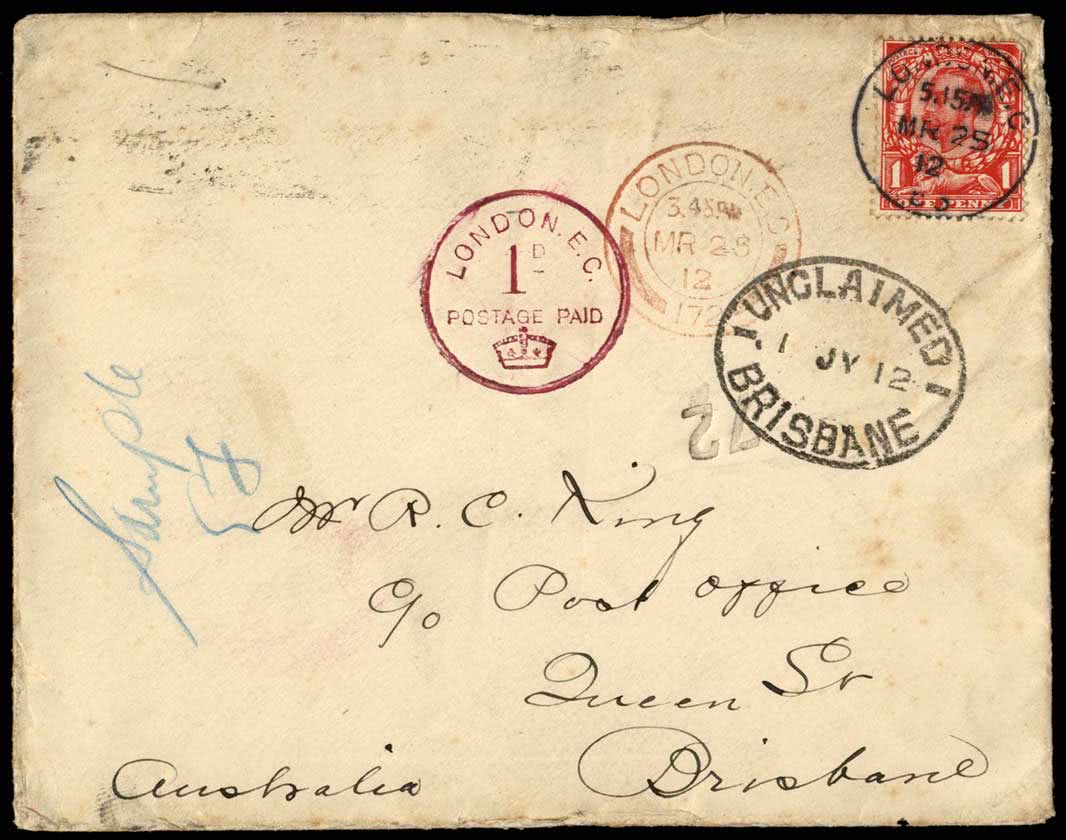 LONDON. E.C
5.15PM
MR 28
12
POSTAGE
1 1
ONE PENNY
LONDON. E.C
3.45PM
MR 28
12
172
LONDON. E.C.
1D
POSTAGE PAID
UNCLAIMED
1 JY 12
BRISBANE
72
Sample
Mr R. C. King
C/o Post Office
Queen St
Brisbane
Australia